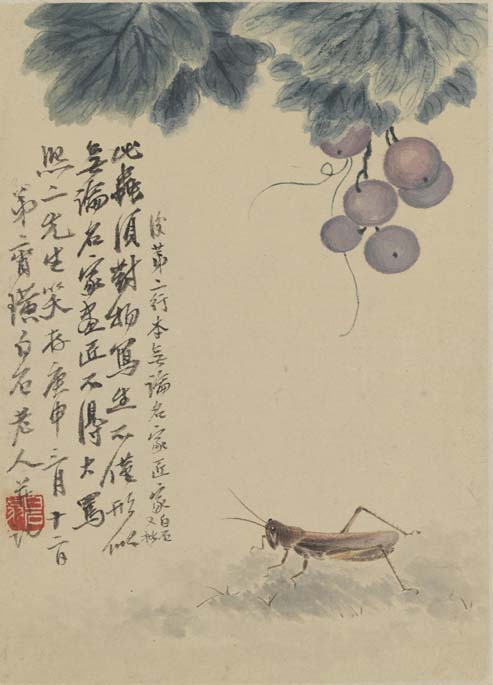 此蟲須對物寫生不僅形似
無論名家畫匠不得大罵
熙二先生笑存庚申三月十二日
弟齊璜白石老人并記
後第二行本無論名家匠家白石又